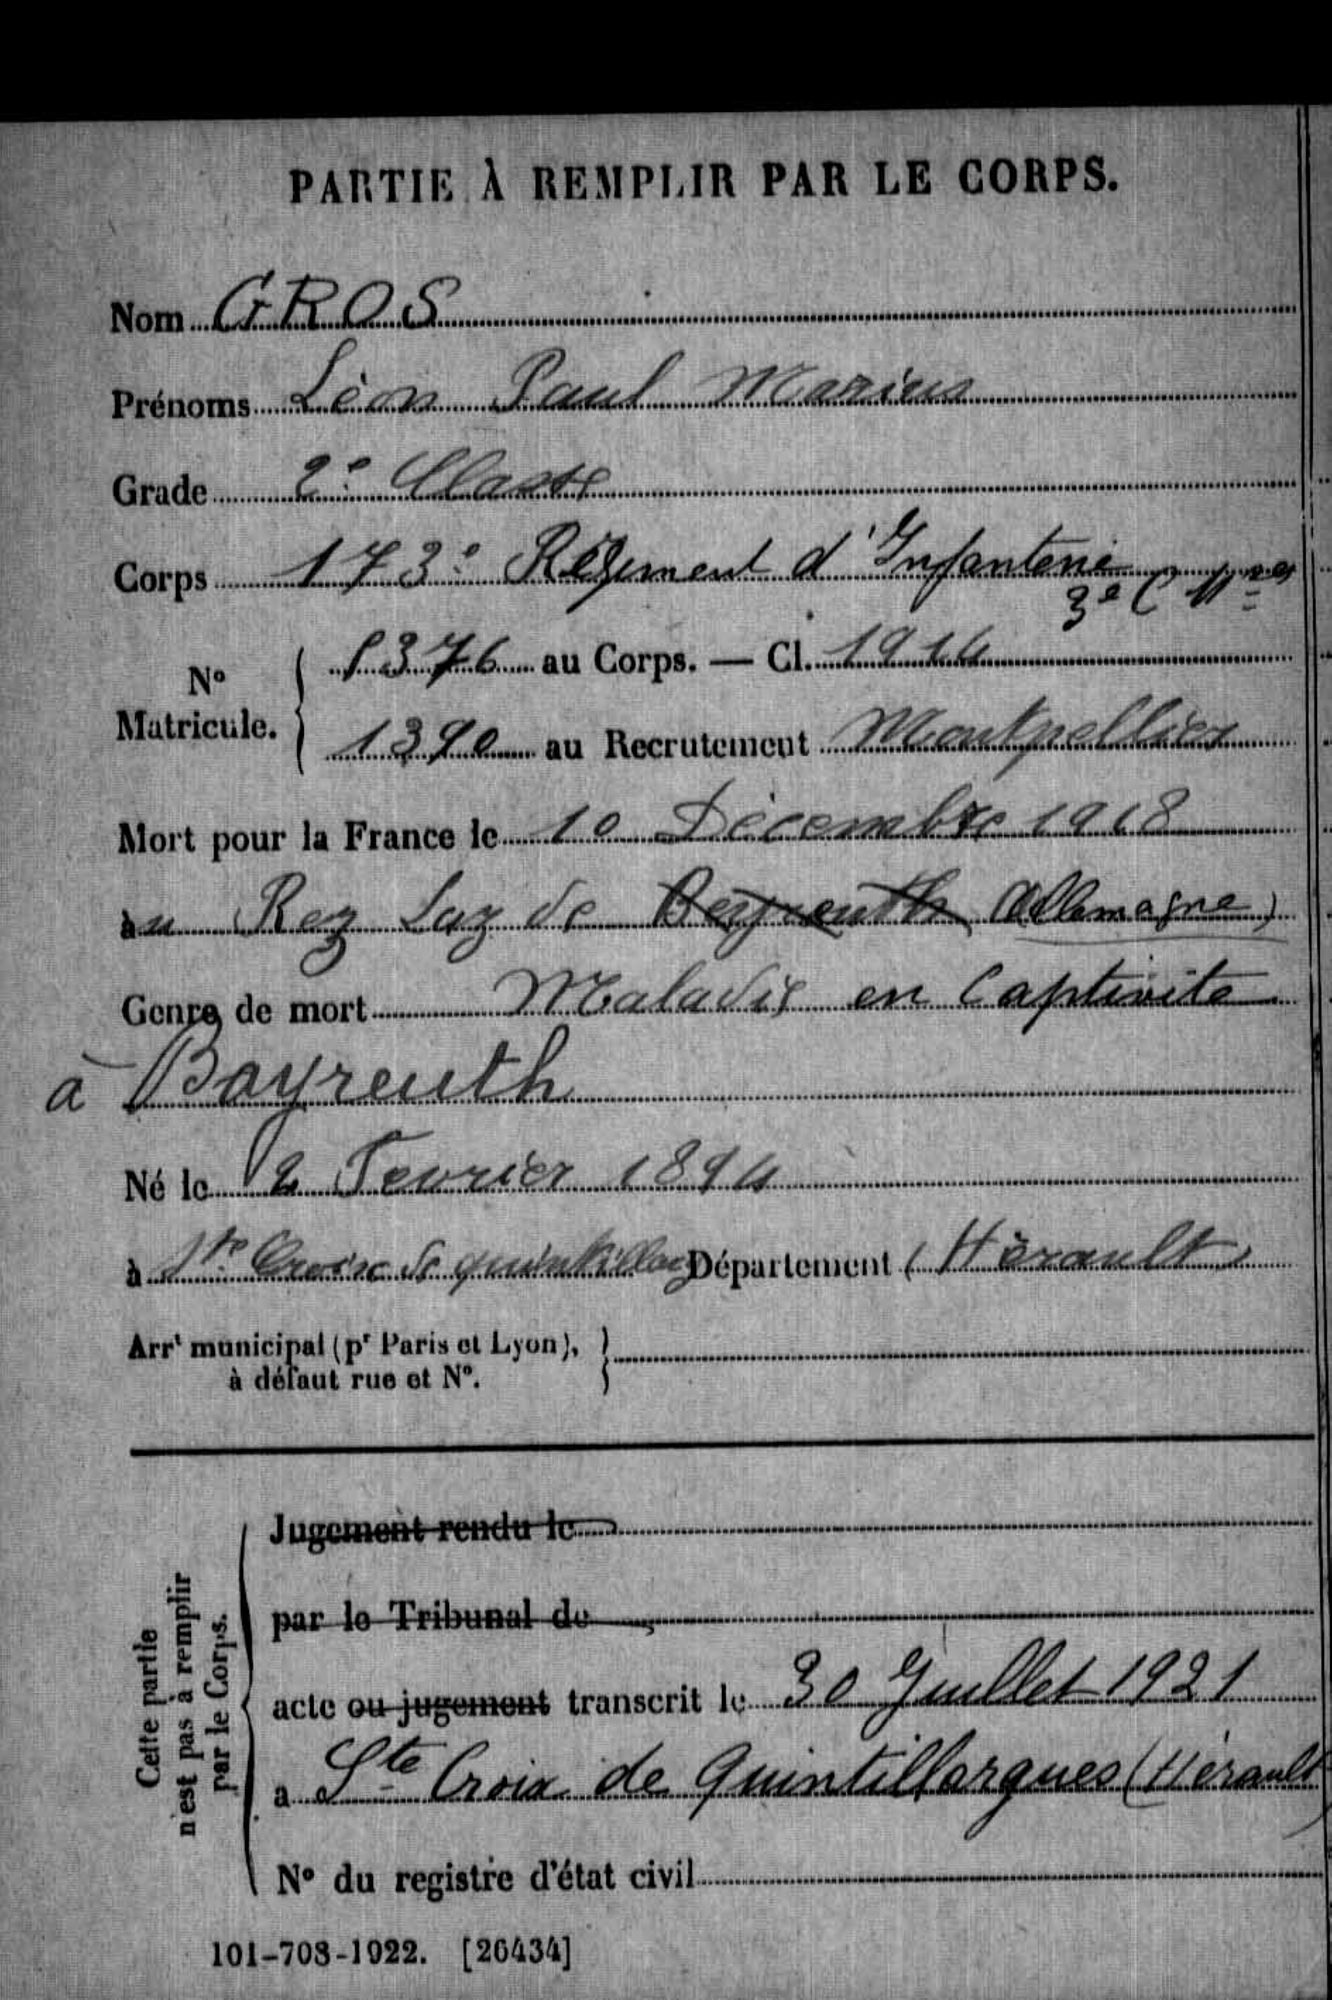 PARTIE À REMPLIR PAR LE CORPS.
Nom GROS
Prénoms Léon Paul Marius
Grade 2e Classe
Corps 173e Régiment d'Infanterie
3e C Mres
No Matricule. 8376 au Corps. — Cl. 1914
1390 au Recrutement Montpellier
Mort pour la France le 10 Décembre 1918
au Rez Laz de Beyreuth (Allemagne)
Genre de mort Maladie en Captivité
à Bayreuth
Né le 2 Fevrier 1894
à Ste Croix de quintillarg Département (Hérault)
Arrt municipal (pr Paris et Lyon),
à défaut rue et No.
Cette partie
n'est pas à remplir
par le Corps.
Jugement rendu le
par le Tribunal de
acte ou jugement transcrit le 30 Juillet 1921
a Ste Croix de Quintillargues (Hérault)
No du registre d'état civil
101-708-1922. [26434]